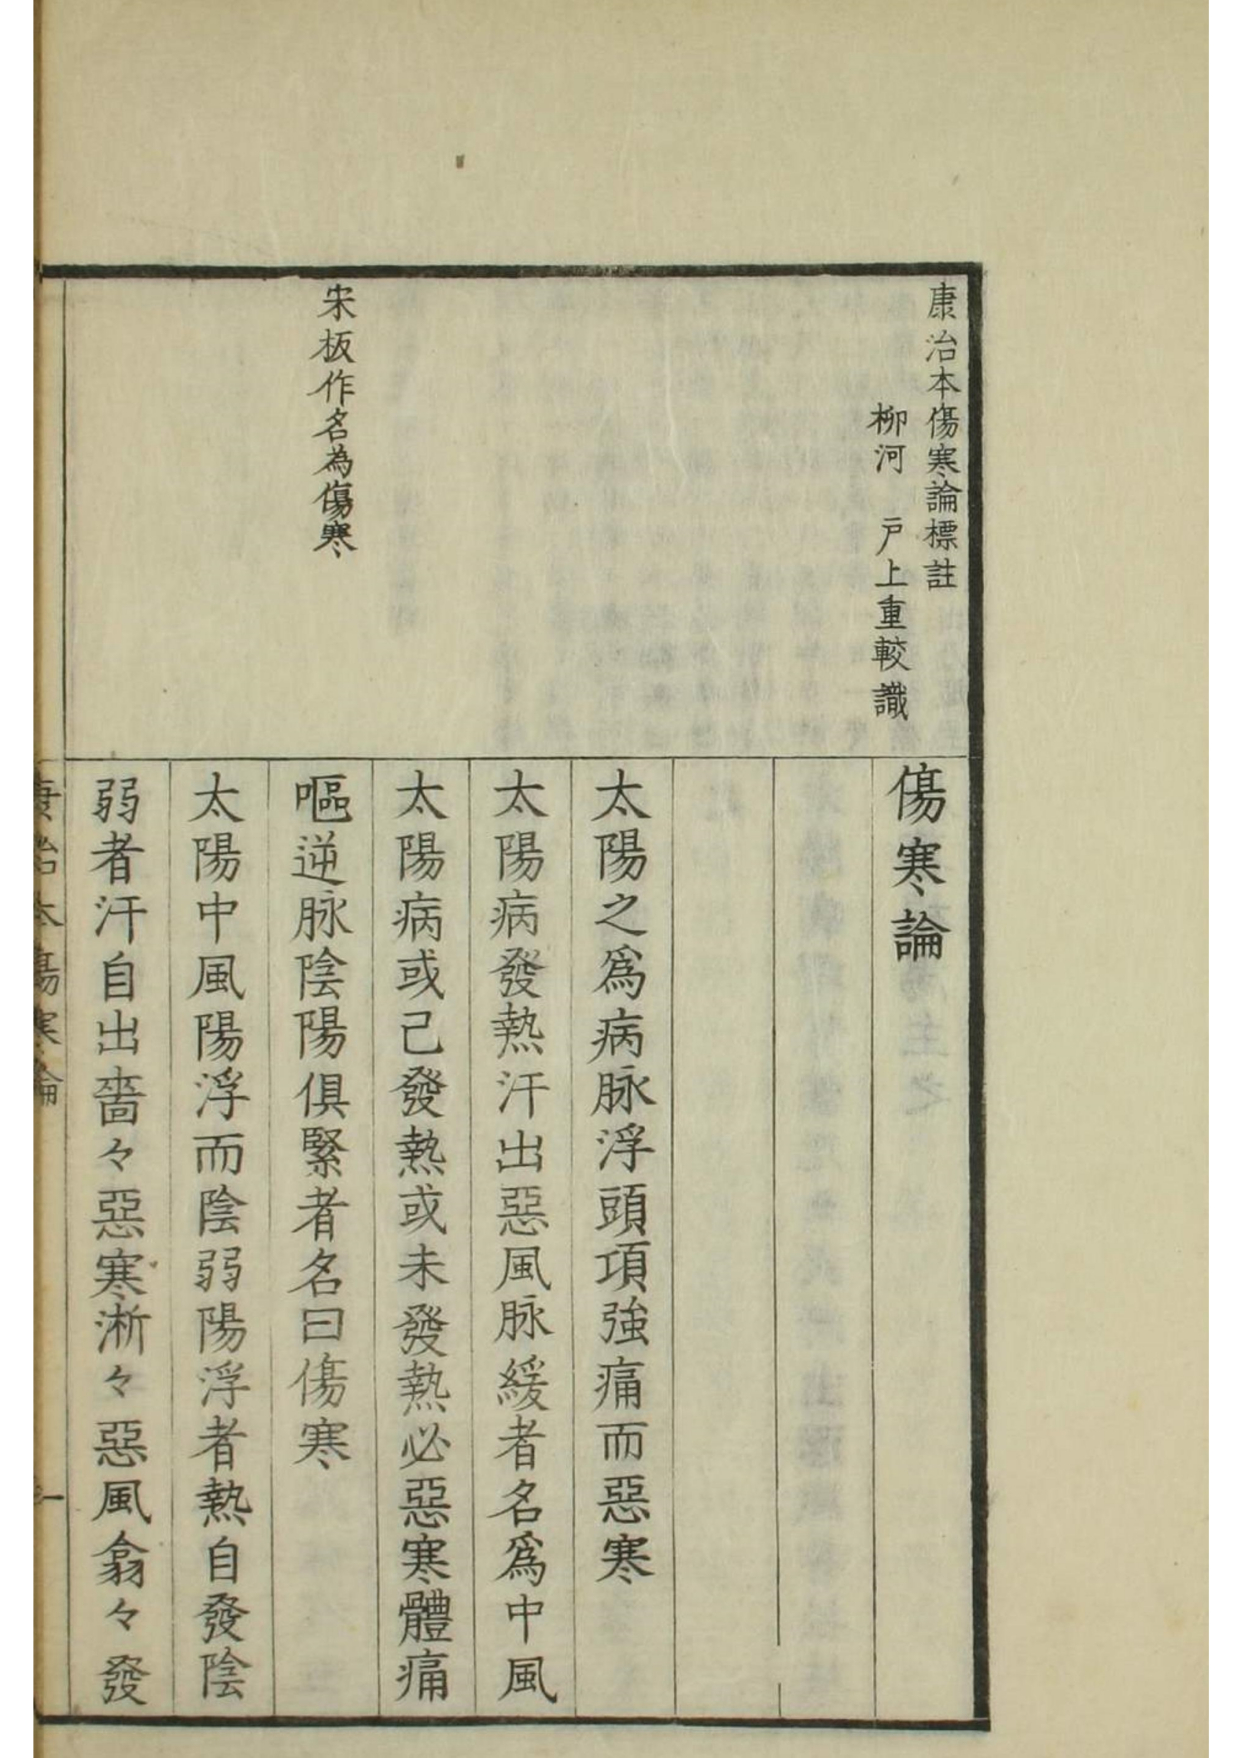 康治本傷寒論標註
柳河 戸上重較識
宋板作名為傷寒
傷寒論
太陽之爲病脉浮頭項強痛而惡寒
太陽病發熱汗出惡風脉緩者名爲中風
太陽病或已發熱或未發熱必惡寒體痛
嘔逆脉陰陽俱緊者名曰傷寒
太陽中風陽浮而陰弱陽浮者熱自發陰
弱者汗自出嗇々惡寒淅々惡風翕々發
康治本傷寒論
一